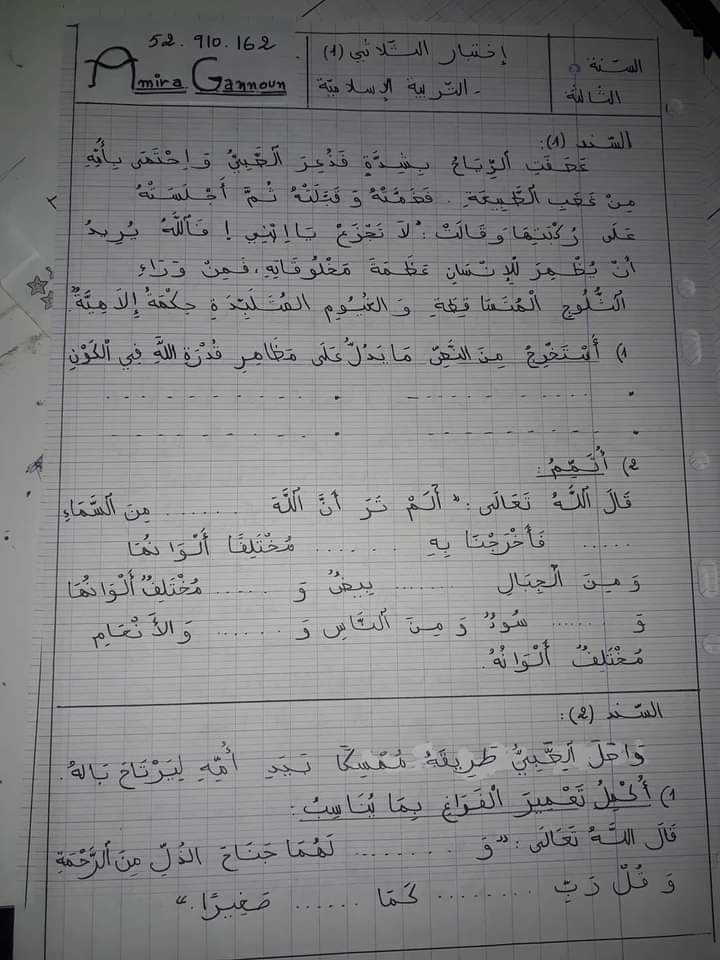 السّنة
الثّالثة
إختبار الثّلاثي (1)
- التّربية الإسلاميّة
52.910.162
Amira Gannoun
السّند (1):
عَصَفَتِ الرِّيَاحُ بِشِدَّةٍ فَذُعِرَ الصَّبِيُّ وَاِحْتَمَى بِأُمِّهِ
مِنْ غَضَبِ الطَّبِيعَةِ. فَضَمَّتْهُ وَ قَبَّلَتْهُ ثُمَّ أَجْلَسَتْهُ
عَلَى رُكْبَتِهَا وَ قَالَتْ: لاَ تَجْزَعْ يَا اِبْنِي! فَاللَّهُ يُرِيدُ
أَنْ يُظْهِرَ لِلْإِنْسَانِ عَظَمَةَ مَخْلُوقَاتِهِ، فَمِنْ وَرَاءِ
الثُّلُوجِ الْمُتَسَاقِطَةِ وَ الغُيُومِ المُتَلَبِّدَةِ حِكْمَةٌ إِلاَهِيَّةٌ.
1) أَسْتَخْرِجُ مِنَ النَّصِّ مَا يَدُلُّ عَلَى مَظَاهِرِ قُدْرَةِ اللَّهِ فِي الْكَوْنِ
2) أُتَمِّمُ:
قَالَ اللَّهُ تَعَالَى: " أَلَمْ تَرَ أَنَّ اللَّهَ ....... مِنَ السَّمَاءِ
..... فَأَخْرَجْنَا بِهِ ...... مُخْتَلِفًا أَلْوَانُهَا
وَ مِنَ الْجِبَالِ ....... بِيضٌ وَ ...... مُخْتَلِفٌ أَلْوَانُهَا
وَ ....... سُودٌ وَ مِنَ النَّاسِ وَ ....... وَالأَنْعَامِ
مُخْتَلِفٌ أَلْوَانُهُ.
السّند (2):
وَاصَلَ الصَّبِيُّ طَرِيقَهُ مُمْسِكًا بِيَدِ أُمِّهِ لِيَرْتَاحَ بَالهُ.
1) أُكْمِلُ تَعْمِيرَ الْفَرَاغِ بِمَا يُنَاسِبُ:
قَالَ اللَّهُ تَعَالَى: "وَ ........ لَهُمَا جَنَاحَ الذُّلِّ مِنَ الرَّحْمَةِ
وَ قُلْ رَبِّ ......... كَمَا ...... صَغِيرًا."